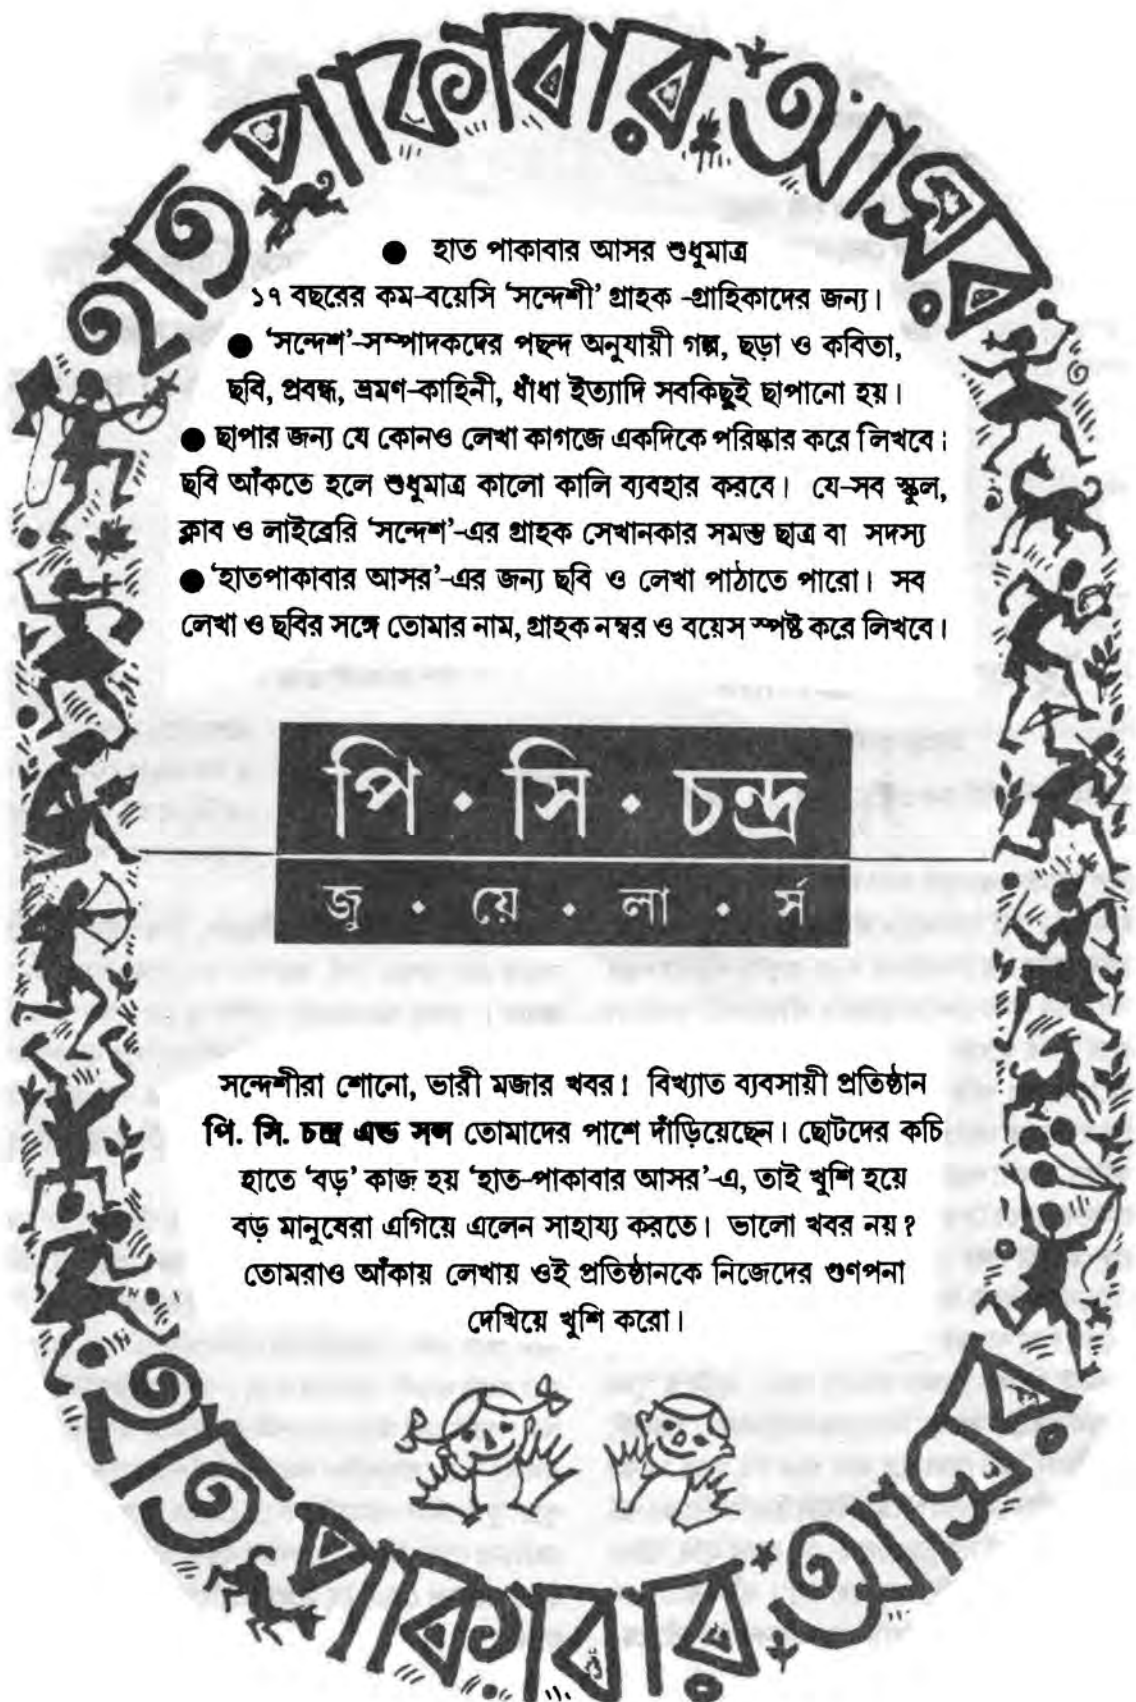 হাত পাকাবার আসর
● হাত পাকাবার আসর শুধুমাত্র
১৭ বছরের কম-বয়েসি ‘সন্দেশী’ গ্রাহক -গ্রাহিকাদের জন্য।
● ‘সন্দেশ’-সম্পাদকদের পছন্দ অনুযায়ী গল্প, ছড়া ও কবিতা,
ছবি, প্রবন্ধ, ভ্রমণ-কাহিনী, ধাঁধা ইত্যাদি সবকিছুই ছাপানো হয়।
● ছাপার জন্য যে কোনও লেখা কাগজে একদিকে পরিষ্কার করে লিখবে;
ছবি আঁকতে হলে শুধুমাত্র কালো কালি ব্যবহার করবে। যে-সব স্কুল,
ক্লাব ও লাইব্রেরি ‘সন্দেশ’-এর গ্রাহক সেখানকার সমস্ত ছাত্র বা সদস্য
● ‘হাতপাকাবার আসর’-এর জন্য ছবি ও লেখা পাঠাতে পারো। সব
লেখা ও ছবির সঙ্গে তোমার নাম, গ্রাহক নম্বর ও বয়েস স্পষ্ট করে লিখবে।
পি · সি · চন্দ্র
জু · য়ে · লা · র্স
সন্দেশীরা শোনো, ভারী মজার খবর! বিখ্যাত ব্যবসায়ী প্রতিষ্ঠান
পি. সি. চন্দ্র এন্ড সন্স তোমাদের পাশে দাঁড়িয়েছেন। ছোটদের কচি
হাতে ‘বড়’ কাজ হয় ‘হাত-পাকাবার আসর’-এ, তাই খুশি হয়ে
বড় মানুষেরা এগিয়ে এলেন সাহায্য করতে। ভালো খবর নয়?
তোমরাও আঁকায় লেখায় ওই প্রতিষ্ঠানকে নিজেদের গুণপনা
দেখিয়ে খুশি করো।
হাত পাকাবার আসর